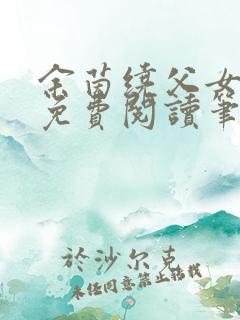 金茵绕父女
免費閱讀筆
於沙尔克
未经同意禁止转载